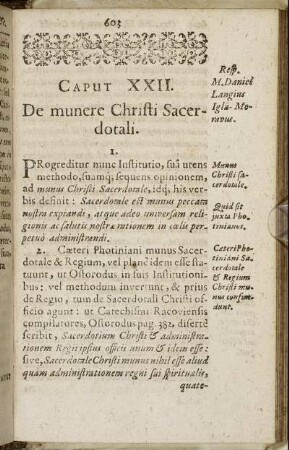 603
CAPUT XXII.
De munere Christi Sacer-
dotali.
Resp.
M. Daniel
Langius
Igla-Mo-
ravus.
1.
PRogreditur nunc Institutio, suâ utens
methodo, suamq́; sequens opinionem,
ad munus Christi Sacerdotale, idq́; his ver-
bis definit: Sacerdotale est munus peccata
nostra expiandi, atque adeo universam reli-
gionis ac salutis nostræ rationem in cœlis per-
petuò administrandi.
Munus
Christi sa-
cerdotale.
Quid sit
juxta Pho-
tinianos.
2. Cæteri Photiniani munus Sacerdo-
tale & Regium, vel planè idem esse sta-
tuunt, ut Ostorodus in suis Institutioni-
bus: vel methodum invertunt, & priùs
de Regio, tum de Sacerdotali Christi of-
ficio agunt: ut Catechismi Racoviensis
compilatores, Ostorodus pag. 382. disertè
scribit, Sacerdotium Christi & administra-
tionem Regii ipsius officii unum & idem es-
sive, Sacerdotale Christi munus nihil esse aliud
quàm administrationem regni sui spiritualis,
Cæteri Pho-
tiniani Sa-
cerdotale
& Regium
Christi mu-
nus confun-
dunt.
quate-